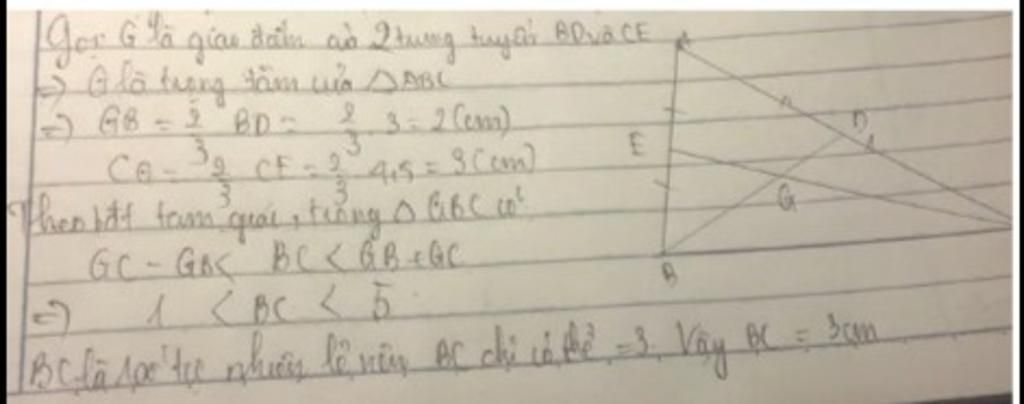 Gọi G là giao điểm của 2 trung tuyến BD và CE
=> G là trọng tâm của △ABC
=> GB = 2/3 BD = 2/3 . 3 = 2 (cm)
CG = 2/3 CE = 2/3 4,5 = 3 (cm)
Theo bất tam giác, trong △ GBC có
GC - GB < BC < GB + GC
=> 1 < BC < 5
BC là số tự nhiên lẻ nên BC chỉ có thể = 3. Vậy BC = 3cm
A
D
E
G
B